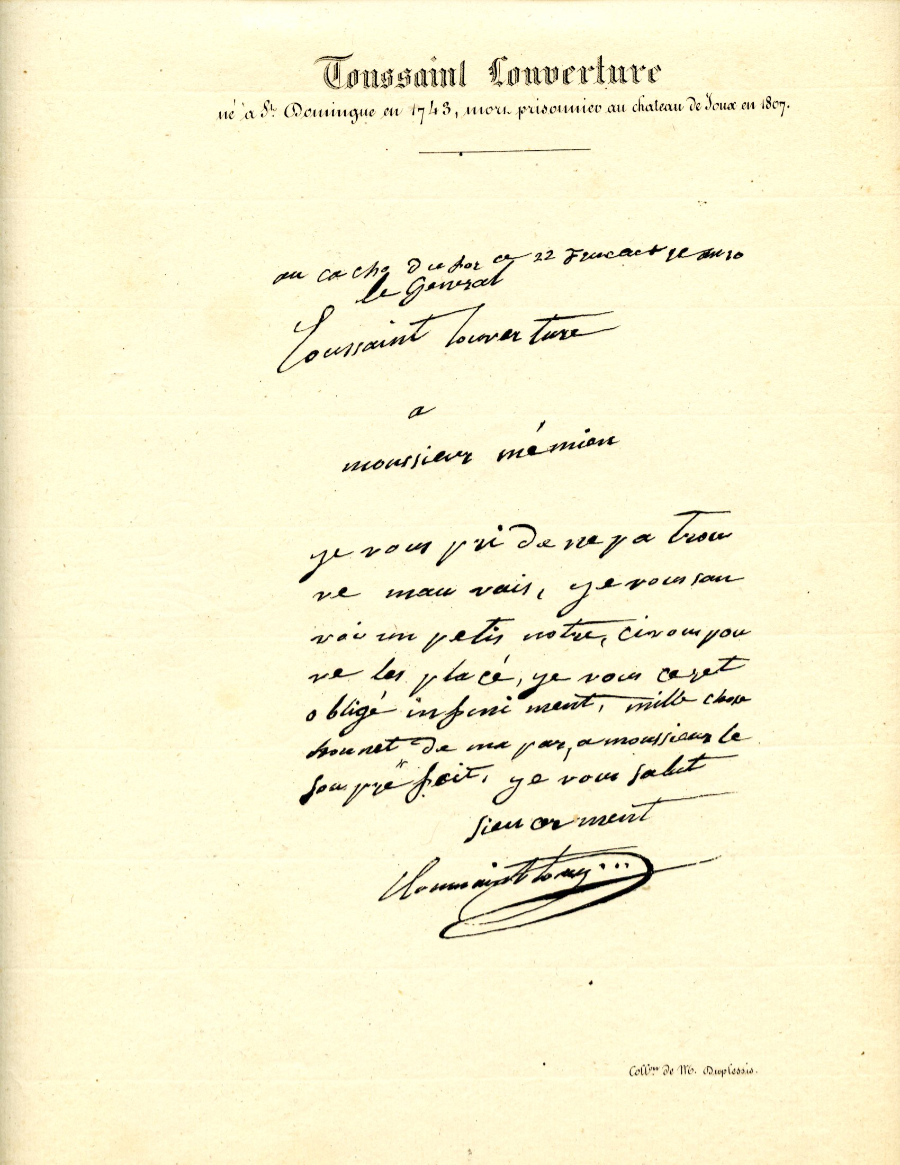 Toussaint Louverture
né à St. Domingue en 1743, mort prisonnier au chateau de Joux en 1807.
au cacho du for ce 22
le General
Toussaint louverture
a
moussieur mémien
je vous pri de ne pa trou
ve mau vais, je vous san
voi un petis notre, ci vous pou
ve les placé, je vous ceret
obligé infini ment, mille chose
honnet de ma par, a moussieur le
sou pré feit, je vous salut
Toussaint Louv...
Coll.on de M. Duplessis.